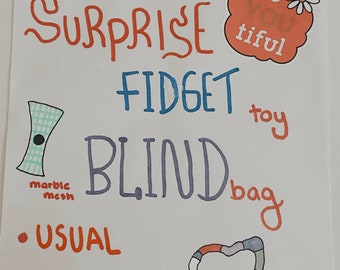 SURPRISE
YOU
tiful
FIDGET
toy
BLIND
bag
marble
mesh
• USUAL